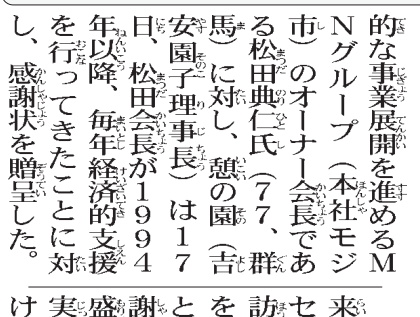 的な事業展開を進めるM
Nグループ（本社モジ
市）のオーナー会長であ
る松田典仁氏（77、群
馬）に対し、憩の園（吉
安園子理事長）は17
日、松田会長が1994
年以降、毎年経済的支援
を行ってきたことに対
し、感謝状を贈呈した。
来
セ
訪
を
と
謝
盛
実
け